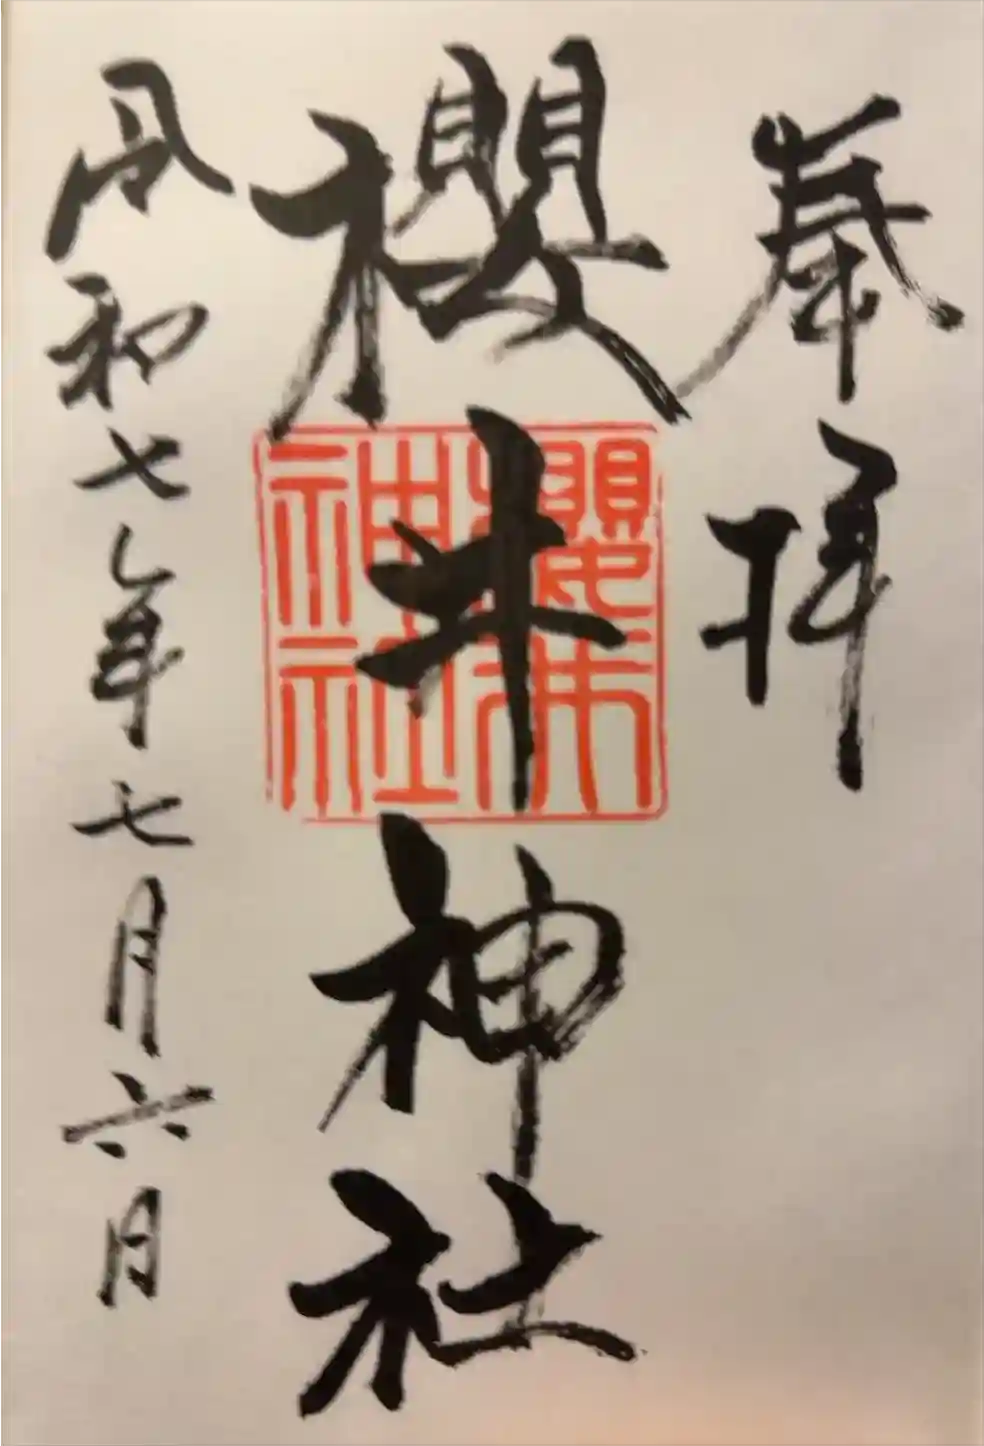 奉拝
櫻井神社
櫻井神社
令和七年七月六日